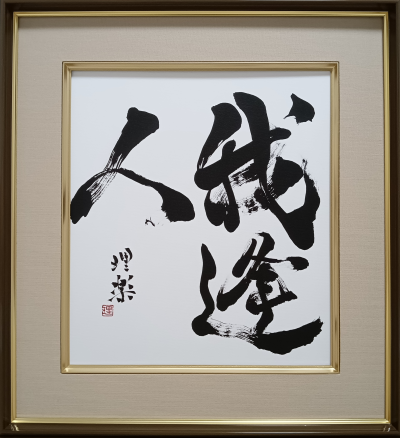 我逢
人
理楽